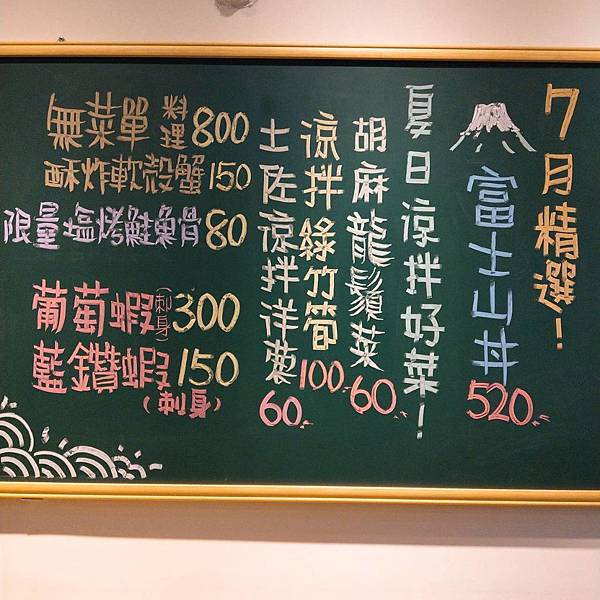 7月精選！
富士山丼
520.
夏日涼拌好菜！
胡麻龍鬚菜
60.
涼拌綠竹筍
100.
土佐涼拌洋蔥
60.
無菜單料理800
酥炸軟殼蟹150
限量塩烤鮭魚骨80
葡萄蝦(刺身)300
藍鑽蝦150
(刺身)